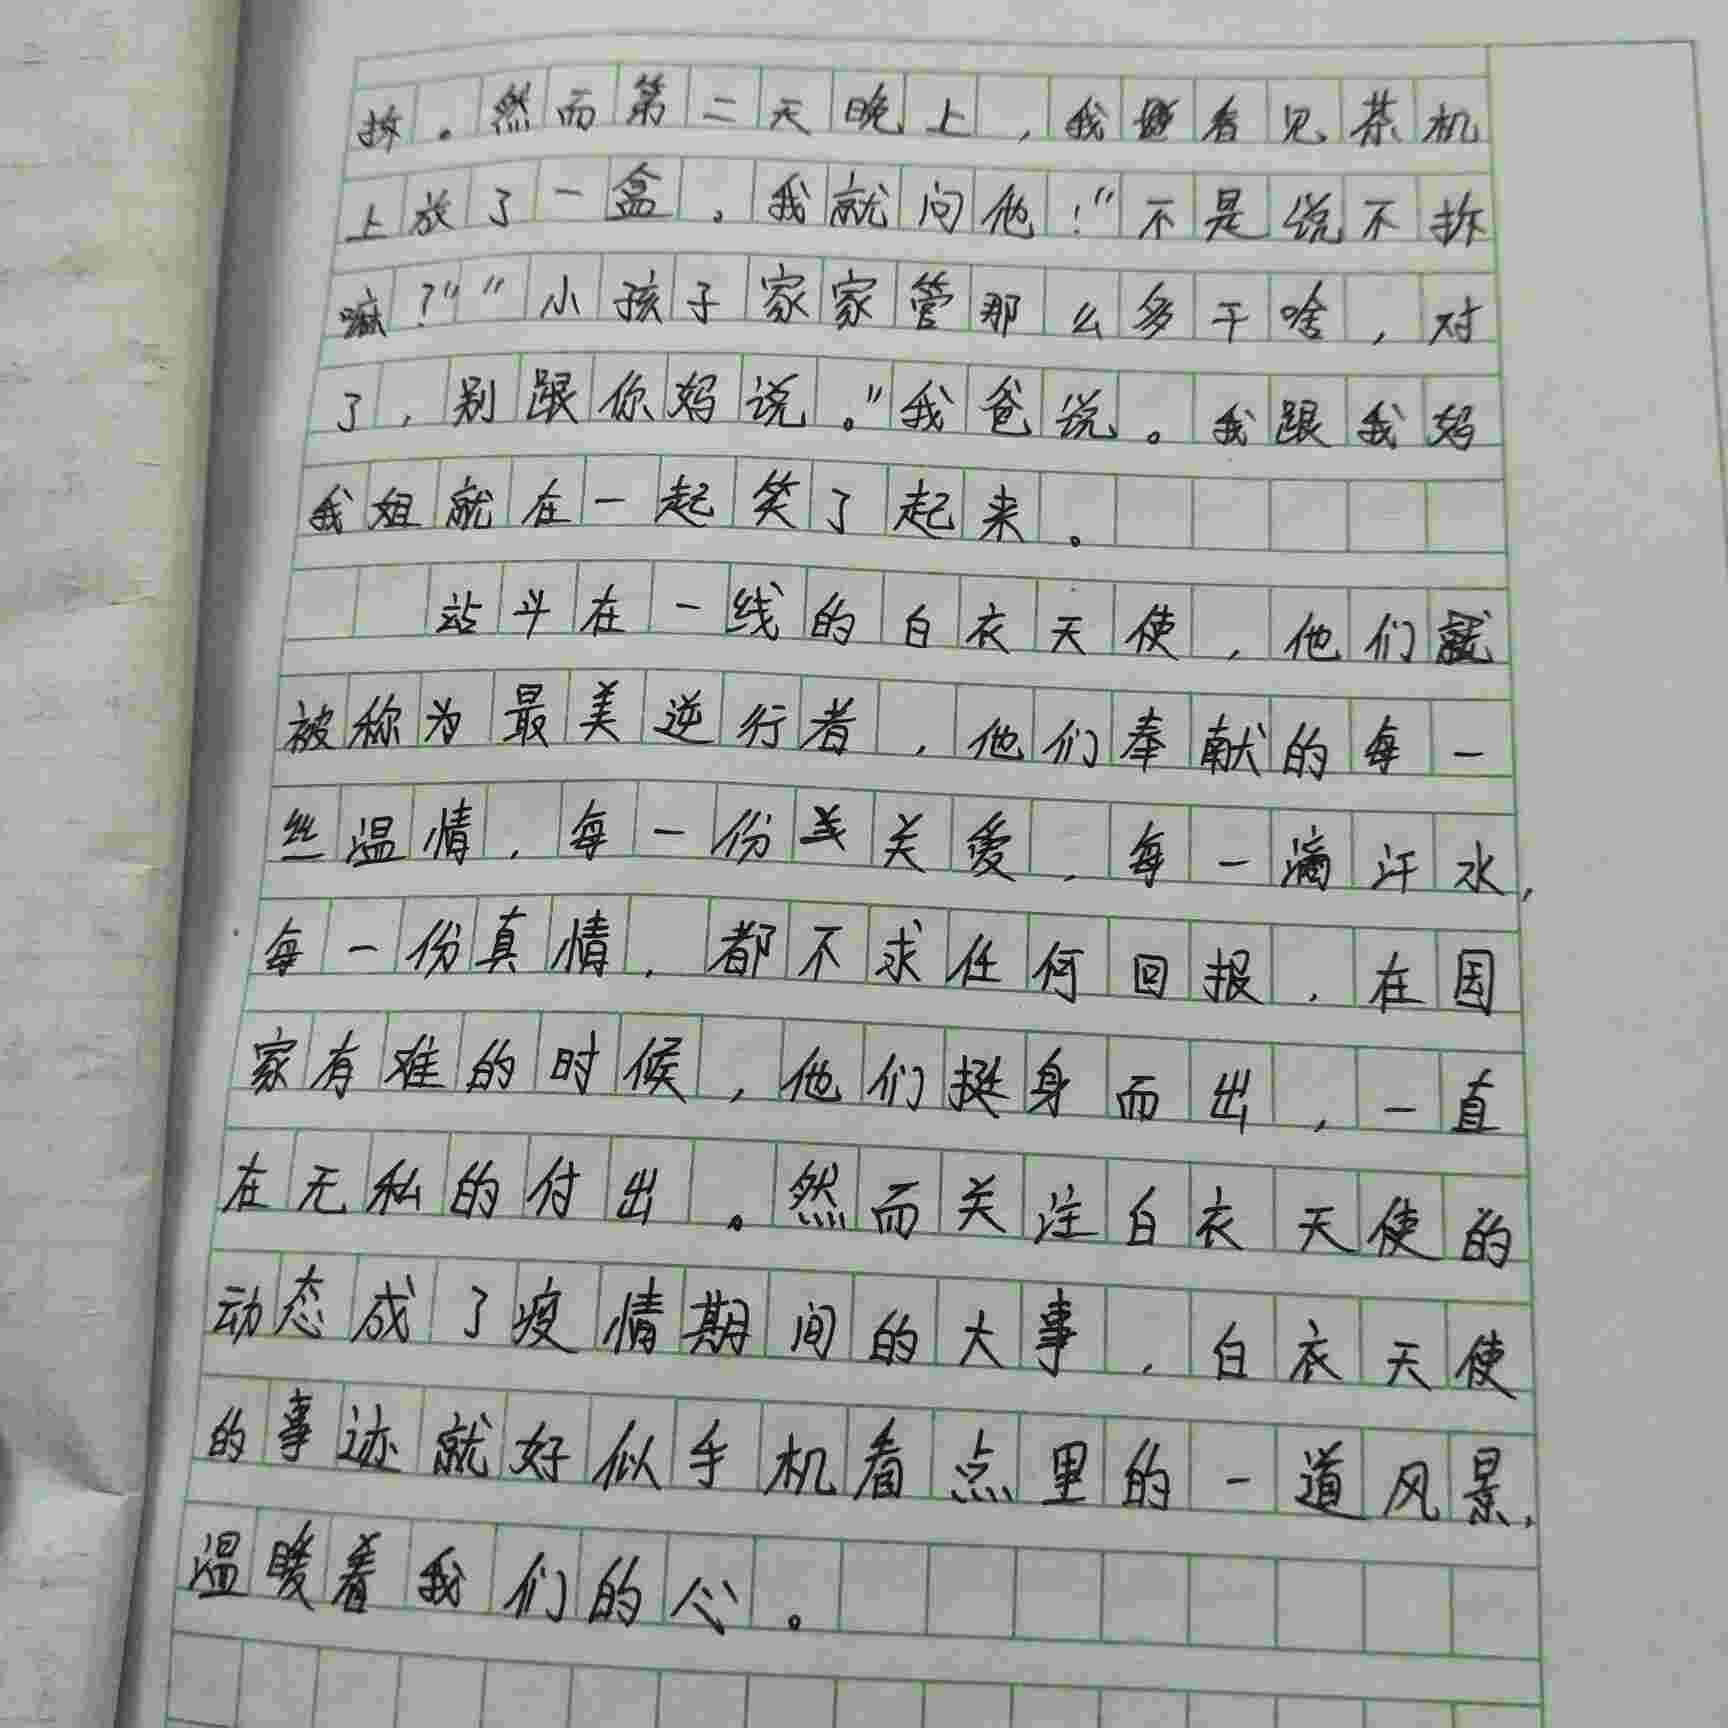 拆。然而第二天晚上，我看见茶机
上放了一盒，我就问他！"不是说不拆
嘛？""小孩子家家管那么多干啥，对
了，别跟你妈说。"我爸说。我跟我妈
我姐就在一起笑了起来。
站斗在一线的白衣天使，他们就
被称为最美逆行者，他们奉献的每一
丝温情，每一份关爱，每一滴汗水，
每一份真情，都不求任何回报，在国
家有难的时候，他们挺身而出，一直
在无私的付出。然而关注白衣天使的
动态成了疫情期间的大事，白衣天使
的事迹就好似手机看点里的一道风景，
温暖着我们的心。